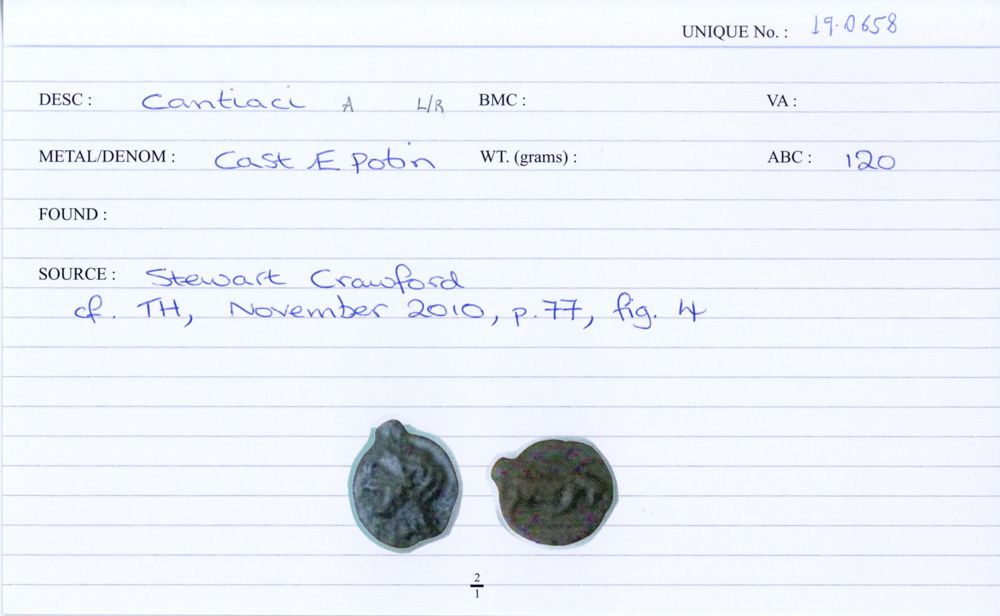 UNIQUE No. : 19.0658
DESC : Cantiaci A L/R BMC : VA :
METAL/DENOM : Cast Æ Potin WT. (grams) : ABC : 120
FOUND :
SOURCE : Stewart Crawford
cf. TH, November 2010, p.77, fig. 4
2
1